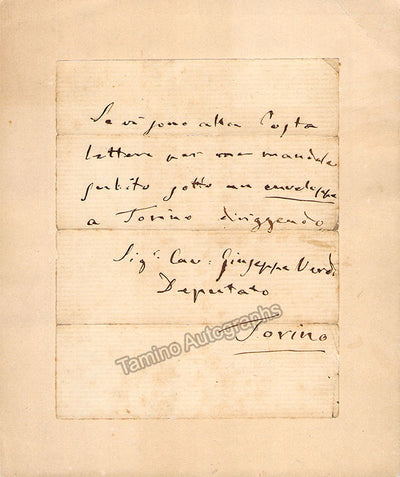 Se vi sono alla Posta
lettere per me mandale
subito sotto un enveloppe
a Torino diriggendo
Sig.r Cav: Giuseppe Verdi
Deputato
Torino
Tamino Autographs